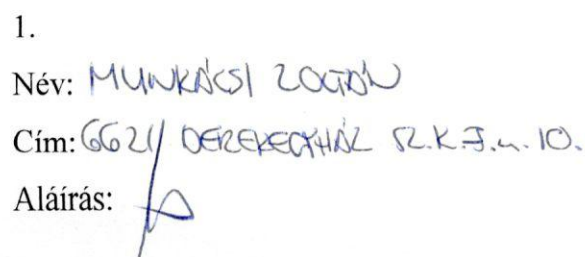 1.
Név: MUNKÁCSI ZOLTÁN
Cím: 6621 DEREKEGYHÁZ R.K.F.u. 10.
Aláírás: